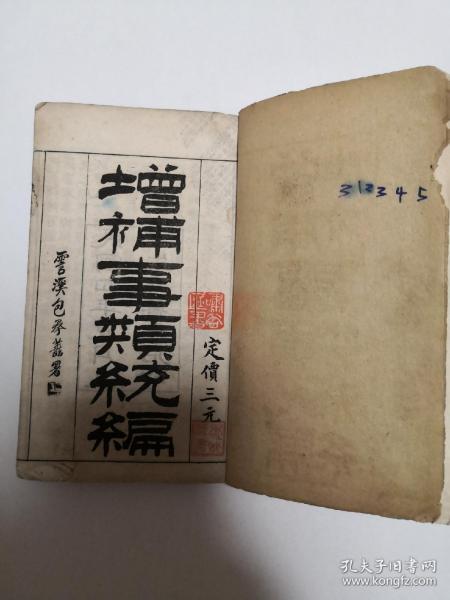 定價三元
增補事類統編
雲溪包承蔭署
312345
孔夫子旧书网
www.kongfz.com